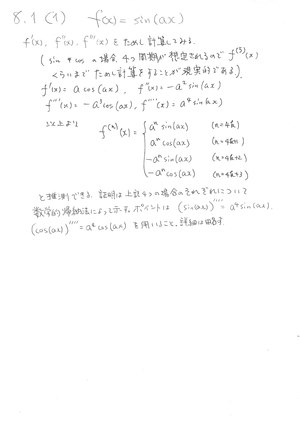 8.1 (1) f(x) = sin(ax)
f'(x), f''(x), f'''(x) をためし計算してみる.
( sin や cos の場合, 4つ周期が想定されるので f^{(5)}(x)
くらいまでためし計算をすることが現実的である.)
f'(x) = a cos(ax), f''(x) = -a² sin(ax)
f'''(x) = -a³ cos(ax), f''''(x) = a⁴ sin(ax)
以上より
f^{(n)}(x) = { aⁿ sin(ax) (n=4k)
aⁿ cos(ax) (n=4k+1)
-aⁿ sin(ax) (n=4k+2)
-aⁿ cos(ax) (n=4k+3)
と推測できる. 証明は上記4つの場合のそれぞれについて
数学的帰納法によって示す. ポイントは (sin(ax))'''' = a⁴ sin(ax).
(cos(ax))'''' = a⁴ cos(ax) を用いること. 詳細は略す